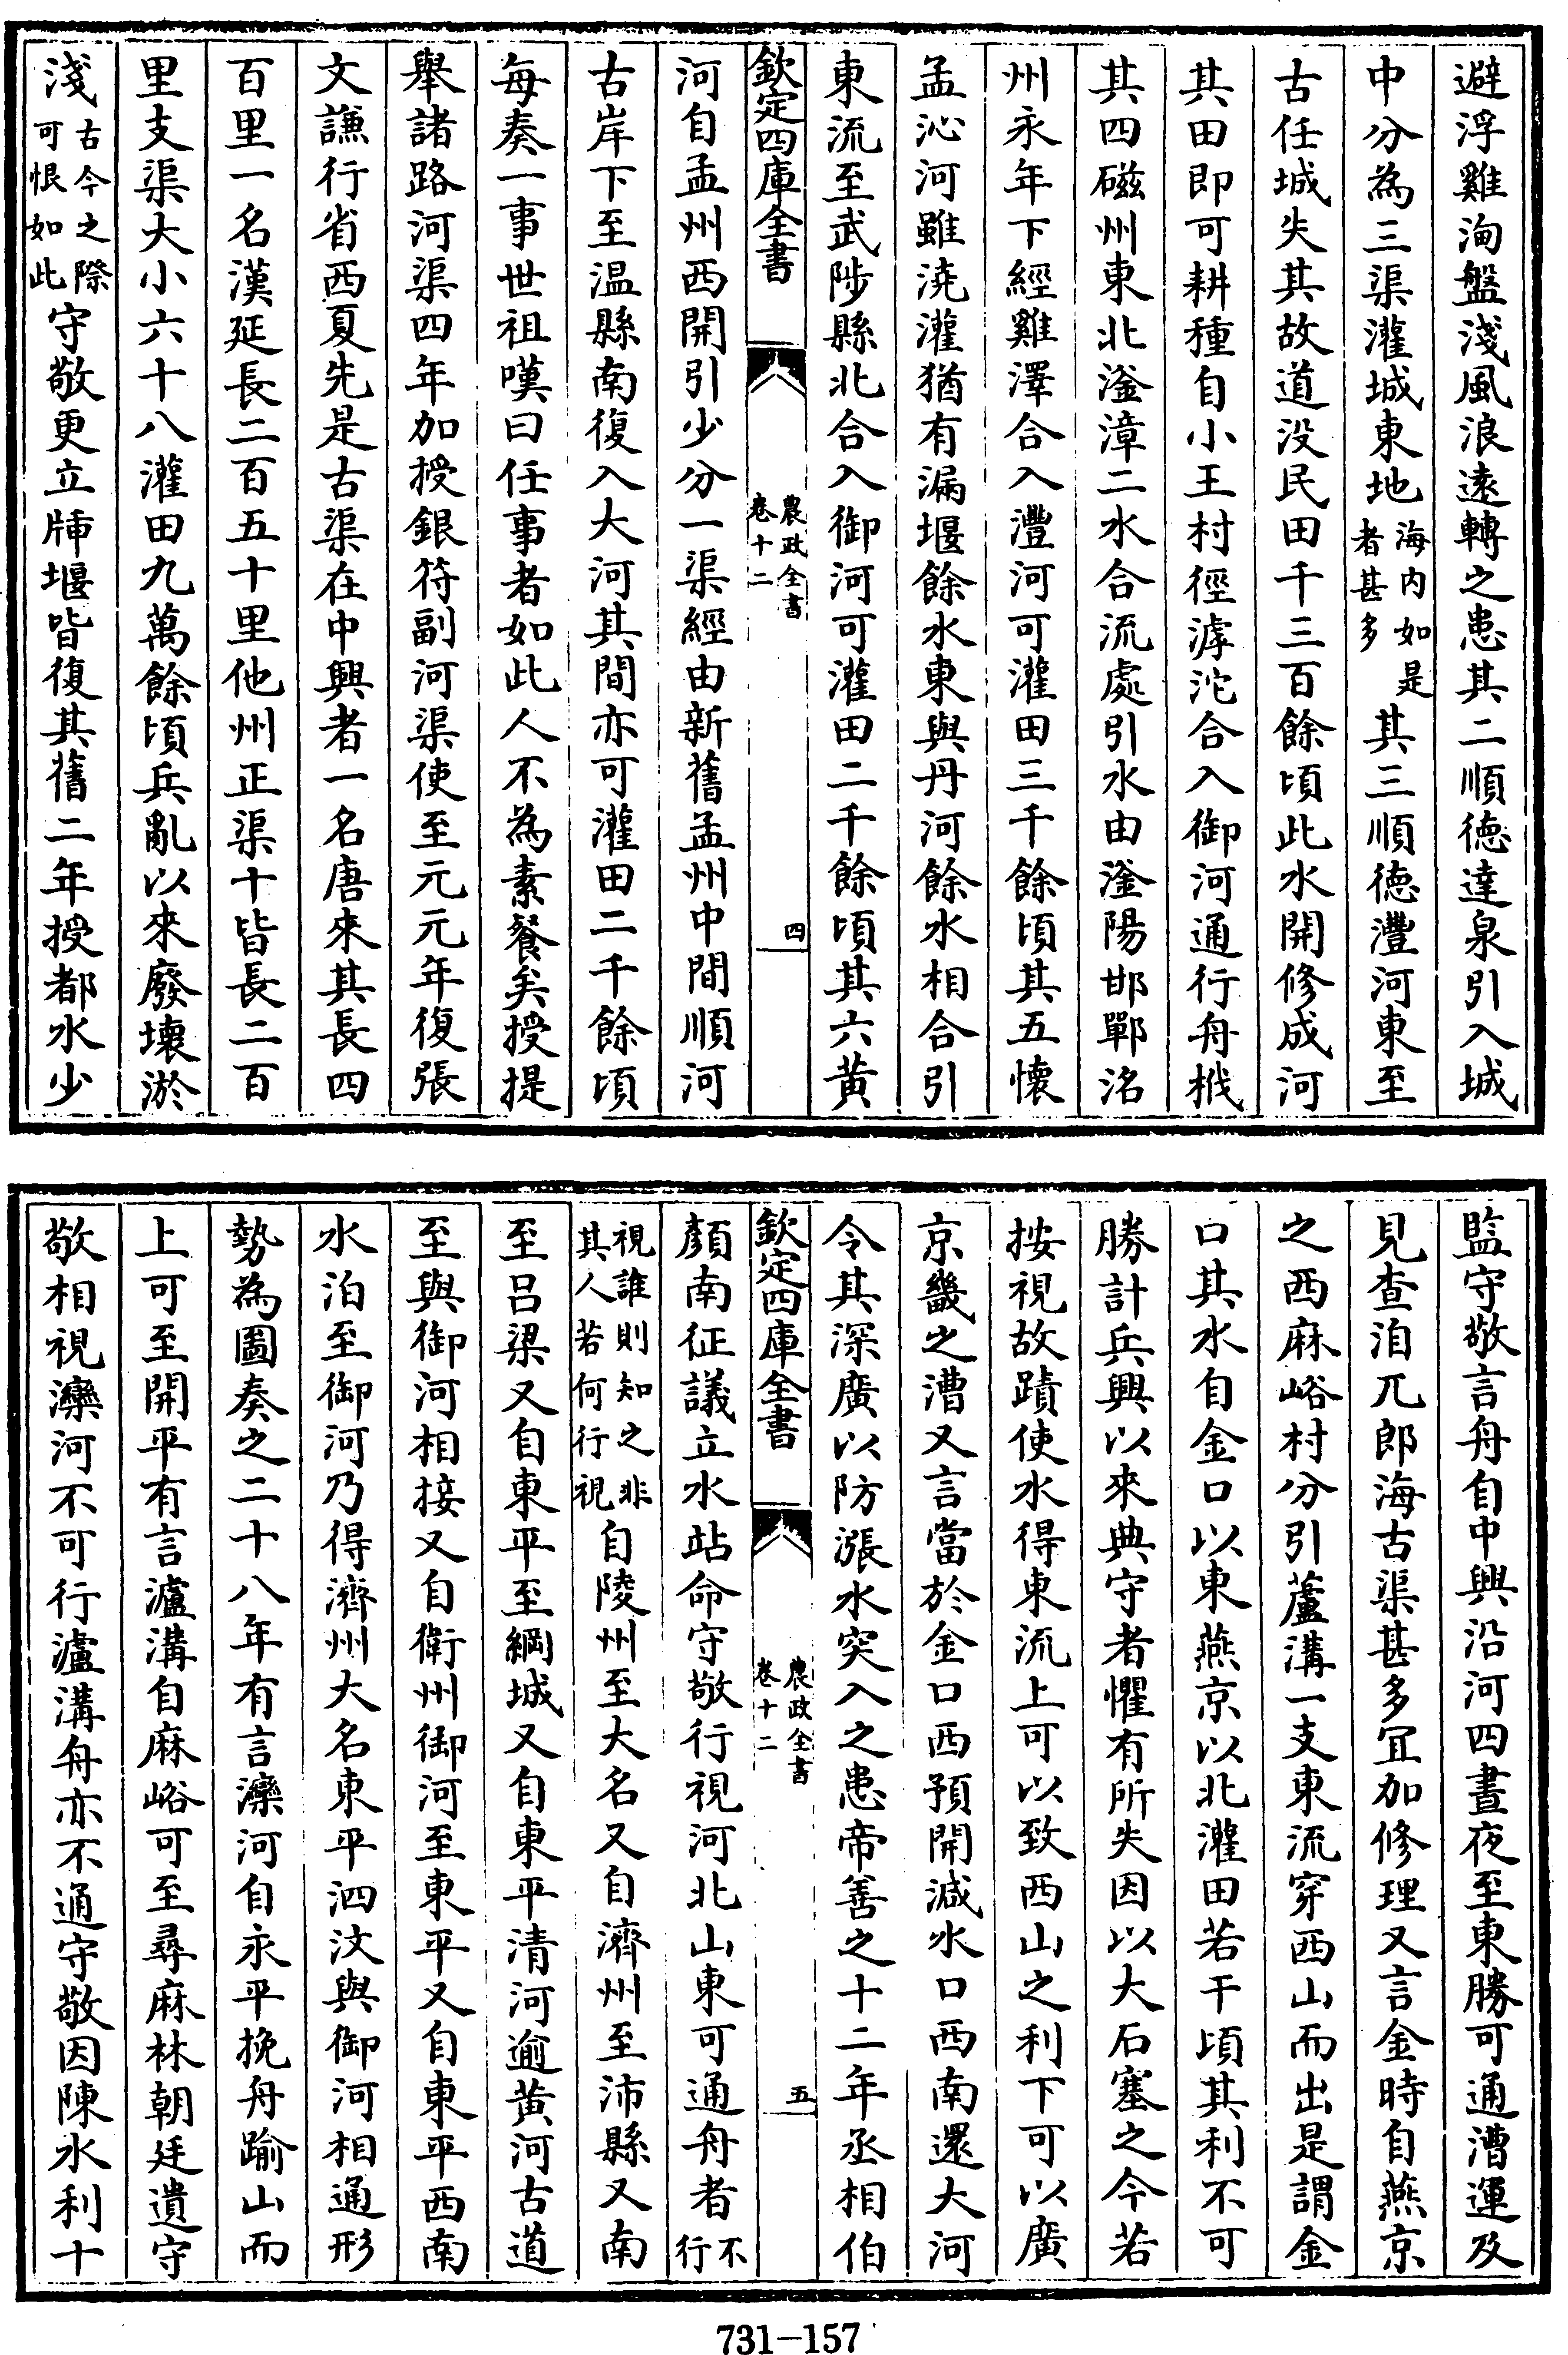 避浮雞洵盤淺風浪遠轉之患其二順德達泉引入城
中分為三渠灌城東地海内如是者甚多其三順德灃河東至
古任城失其故道没民田千三百餘頃此水開修成河
其田即可耕種自小王村徑滹沱合入御河通行舟栰
其四磁州東北滏漳二水合流處引水由滏陽邯鄲洺
州永年下經雞澤合入灃河可灌田三千餘頃其五懷
孟沁河雖澆灌猶有漏堰餘水東與丹河餘水相合引
東流至武陟縣北合入御河可灌田二千餘頃其六黄
欽定四庫全書
農政全書
卷十二
四
河自孟州西開引少分一渠經由新舊孟州中間順河
古岸下至温縣南復入大河其間亦可灌田二千餘頃
每奏一事世祖嘆曰任事者如此人不為素餐矣授提
舉諸路河渠四年加授銀符副河渠使至元元年復張
文謙行省西夏先是古渠在中興者一名唐來其長四
百里一名漢延長二百五十里他州正渠十皆長二百
里支渠大小六十八灌田九萬餘頃兵亂以來廢壞淤
淺古今之際可恨如此守敬更立牐堰皆復其舊二年授都水少
監守敬言舟自中興沿河四晝夜至東勝可通漕運及
見查洎兀郎海古渠甚多宜加修理又言金時自燕京
之西麻峪村分引蘆溝一支東流穿西山而出是謂金
口其水自金口以東燕京以北灌田若干頃其利不可
勝計兵興以來典守者懼有所失因以大石塞之今若
按視故蹟使水得東流上可以致西山之利下可以廣
京畿之漕又言當於金口西預開減水口西南還大河
令其深廣以防漲水突入之患帝善之十二年丞相伯
欽定四庫全書
農政全書
卷十二
五
顔南征議立水站命守敬行視河北山東可通舟者不行
視誰則知之非其人若何行視自陵州至大名又自濟州至沛縣又南
至吕梁又自東平至綱城又自東平清河逾黄河古道
至與御河相接又自衛州御河至東平又自東平西南
水泊至御河乃得濟州大名東平泗汶與御河相通形
勢為圖奏之二十八年有言灤河自永平挽舟踰山而
上可至開平有言瀘溝自麻峪可至尋麻林朝廷遣守
敬相視灤河不可行瀘溝舟亦不通守敬因陳水利十
731-157